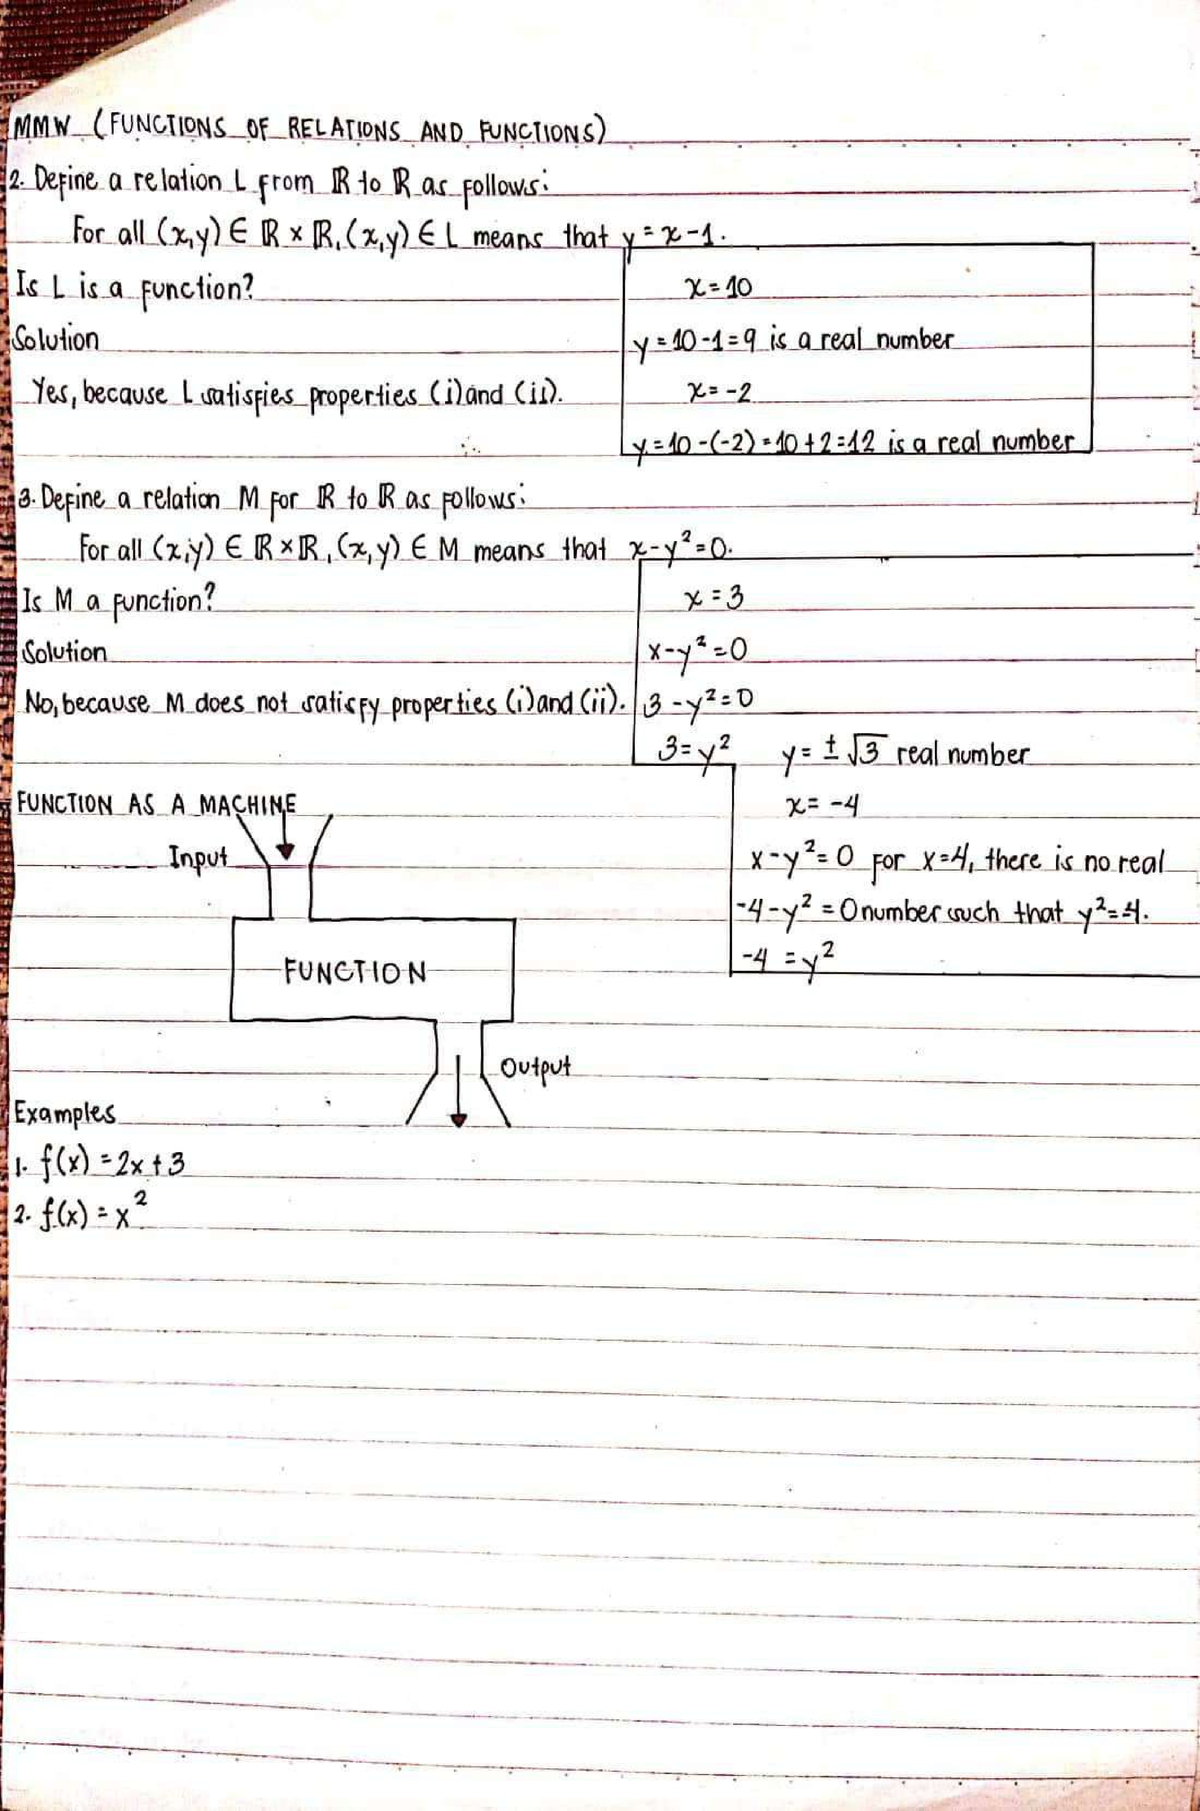 MMW (FUNCTIONS OF RELATIONS AND FUNCTIONS)
2. Define a relation L from ℝ to ℝ as follows:
For all (x,y) ∈ ℝ × ℝ, (x,y) ∈ L means that y = x-1.
Is L is a function?
Solution
Yes, because L satisfies properties (i) and (ii).
x = 10
y = 10-1 = 9 is a real number
x = -2
y = 10-(-2) = 10+2 = 12 is a real number
3. Define a relation M for ℝ to ℝ as follows:
For all (x,y) ∈ ℝ × ℝ, (x,y) ∈ M means that x-y² = 0.
Is M a function?
Solution
No, because M does not satisfy properties (i) and (ii).
x = 3
x-y² = 0
3-y² = 0
3 = y² y = ± √3 real number
x = -4
x-y² = 0 for x=4, there is no real
-4-y² = 0 number such that y² = 4.
-4 = y²
FUNCTION AS A MACHINE
Input
FUNCTION
Output
Examples
1. f(x) = 2x+3
2. f(x) = x²